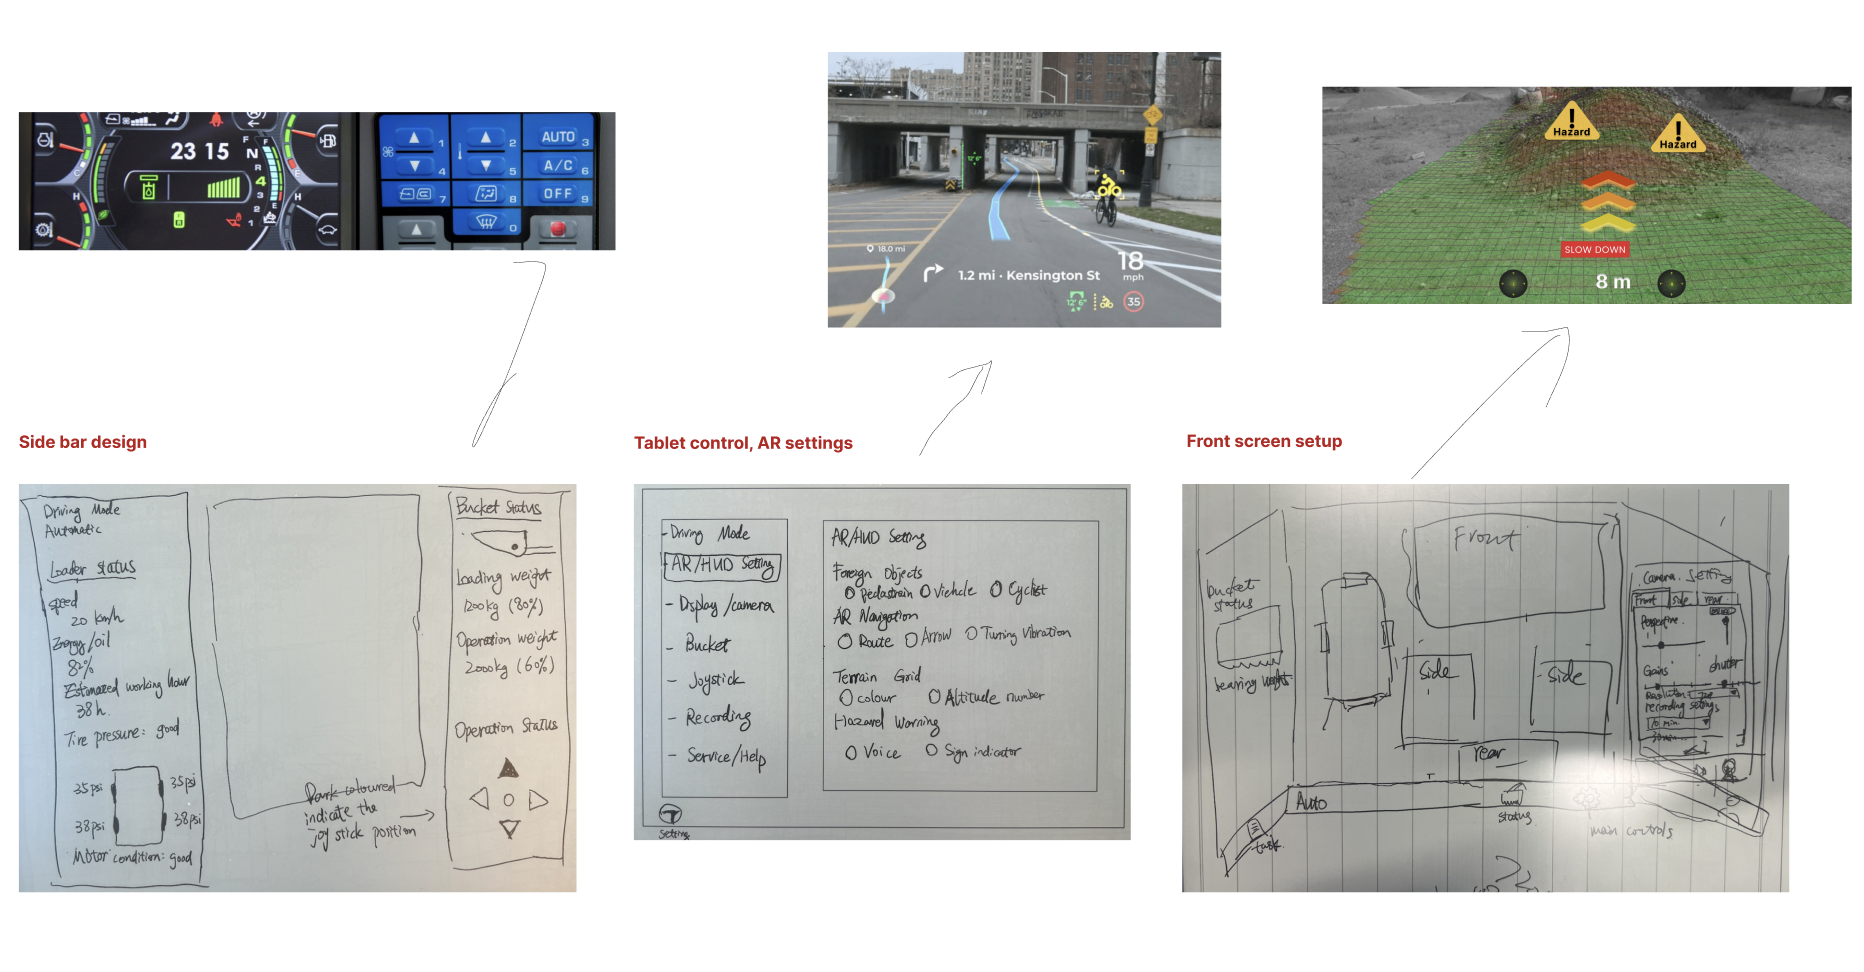 23 15
F
N
R
4
3
2
1
C
H
E
H
F
E
1
2
AUTO 3
4
5
A/C 6
7
8
OFF 9
0
12' 6"
18.0 mi
1.2 mi · Kensington St
18
mph
12' 6"
35
!
Hazard
!
Hazard
SLOW DOWN
8 m
Side bar design
Tablet control, AR settings
Front screen setup
Driving Mode
Automatic
Loader status
speed
20 km/h
Energy/oil
82%
Estimated working hour
38 h.
Tire pressure: good
35psi
35psi
38psi
38psi
Motor condition: good
Dark coloured
indicate the
joy stick position
Bucket Status
Loading weight
1200kg (80%)
Operation weight
2000kg (60%)
Operation Status
- Driving Mode
- AR/HUD Setting
- Display /camera
- Bucket
- Joystick
- Recording
- Service/Help
Setting
AR/HUD Setting
Foreign Objects
Pedastrain
Viehcle
Cyclist
AR Navigation
Route
Arrow
Turing Vibration
Terrain Grid
colour
Altitude number
Hazard Warning
Voice
Sign indicator
bucket
status
bearing weight
Front
side
side
rear
Camera Setting
Front
side
rear
Gains
shutter
Resolution
recording settings
10 min
30min
Auto
task
status
main controls